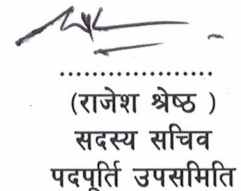 ....................
(राजेश श्रेष्ठ )
सदस्य सचिव
पदपूर्ति उपसमिति